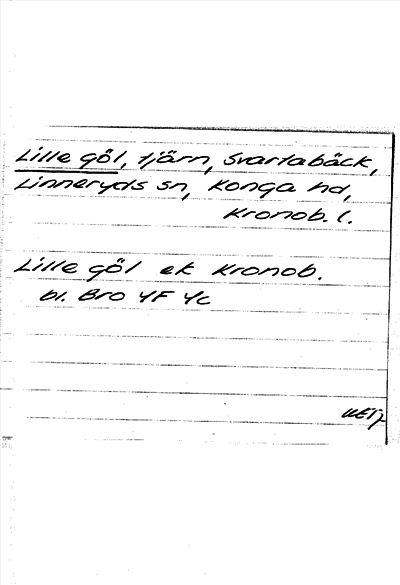 Lille göl, tjärn, Svartabäck,
Linneryds sn, Konga hd,
Kronob. l.
Lille göl ek Kronob.
bl. Bro 4F 4c